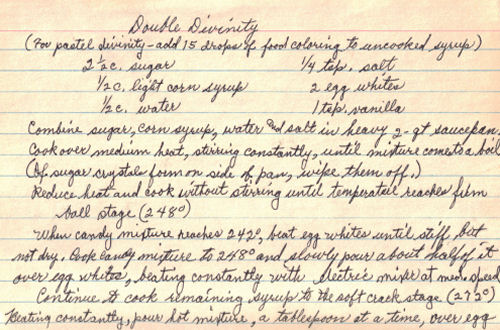 Double Divinity
(For pastel divinity - add 15 drops of food coloring to uncooked syrup)
2 1/2 c. sugar 1/4 tsp. salt
1/2 c. light corn syrup 2 egg whites
1/2 c. water 1 tsp. vanilla
Combine sugar, corn syrup, water and salt in heavy 2-qt saucepan.
Cook over medium heat, stirring constantly, until mixture comes to a boil
(If sugar crystals form on side of pan, wipe them off.)
Reduce heat and cook without stirring until temperature reaches firm
ball stage (248°)
When candy mixture reaches 242°, beat egg whites until stiff, but
not dry. Cook candy mixture to 248° and slowly pour about half of it
over egg whites, beating constantly with electric mixer at med. speed
Continue to cook remaining syrup to the soft crack stage (272°)
Beating constantly, pour hot mixture, a tablespoon at a time, over egg